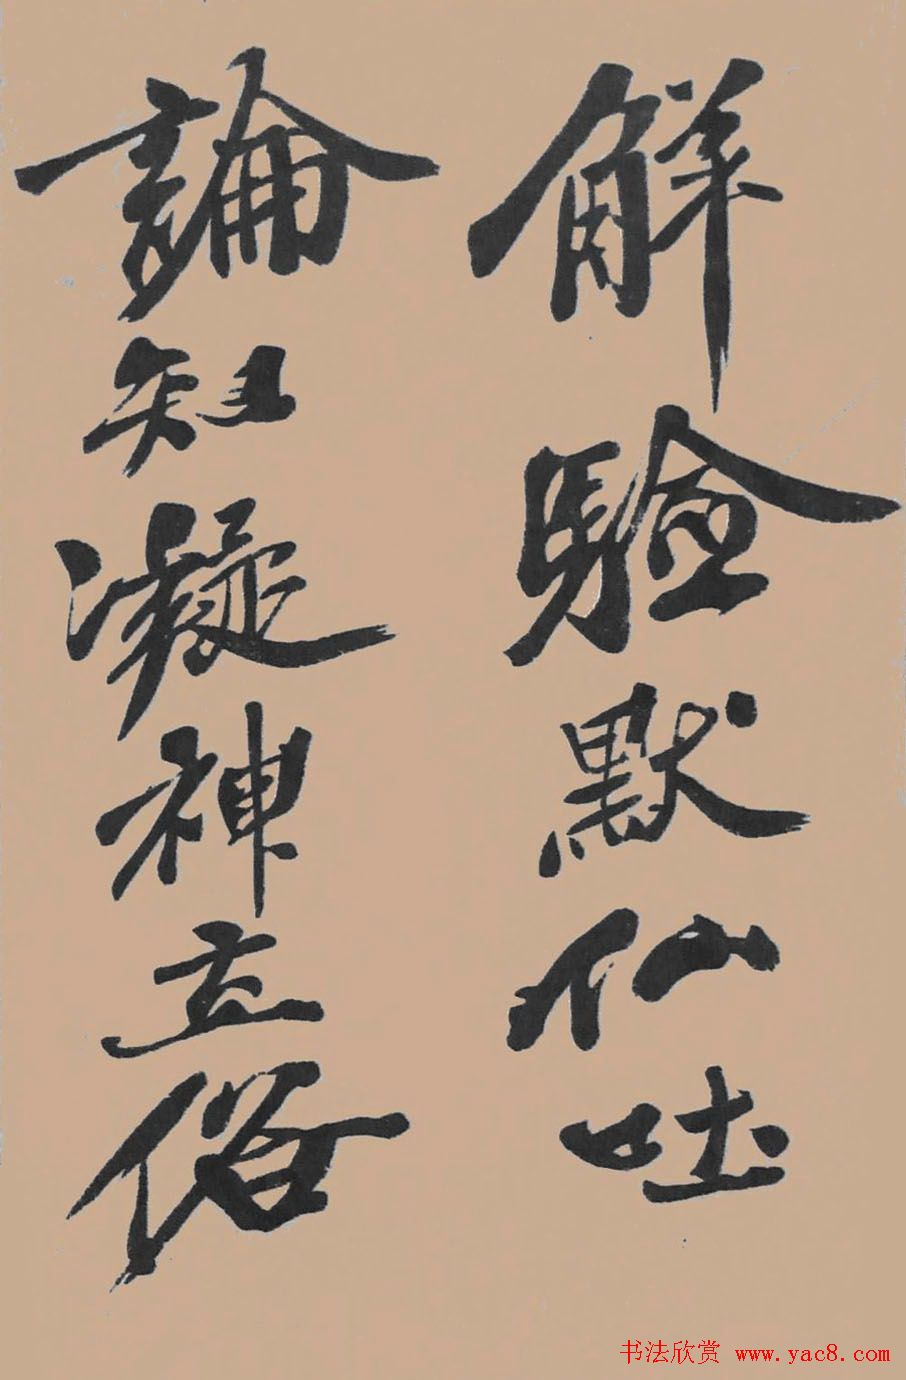 解驗默仙吐
論知凝神立俗
书法欣赏 www.yac8.com